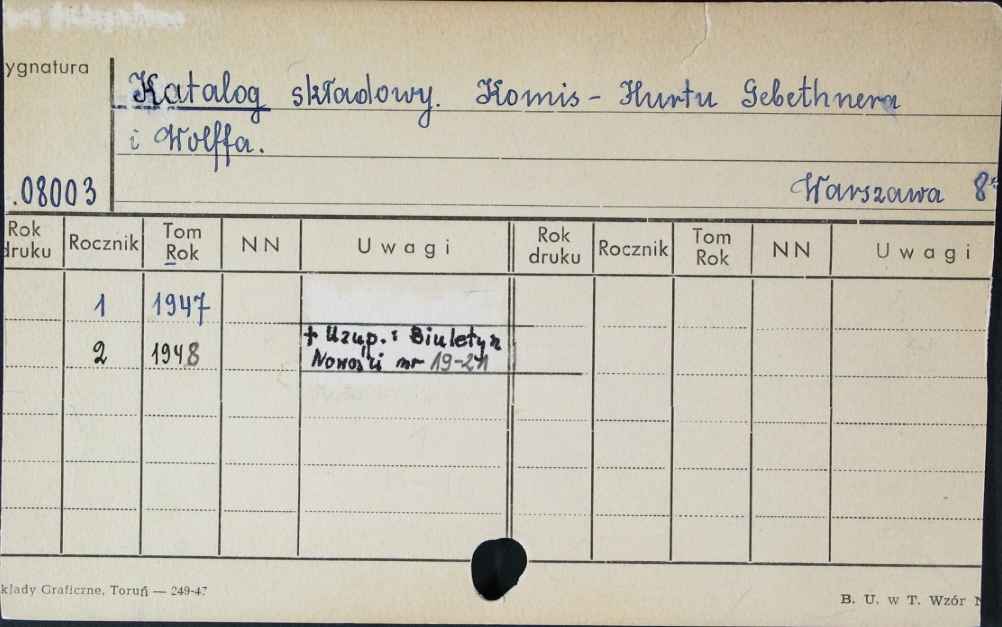 ygnatura
Katalog składowy. Komis - Hurtu Gebethnera
i Wolffa.
.08003
Warszawa 8°
Rok druku Rocznik Tom Rok NN Uwagi Rok druku Rocznik Tom Rok NN Uwagi
1 1947
+ Uzup. i Biuletyn
2 1948 Nowości nr 19-21
kłady Graficzne, Toruń — 249-47
B. U. w T. Wzór